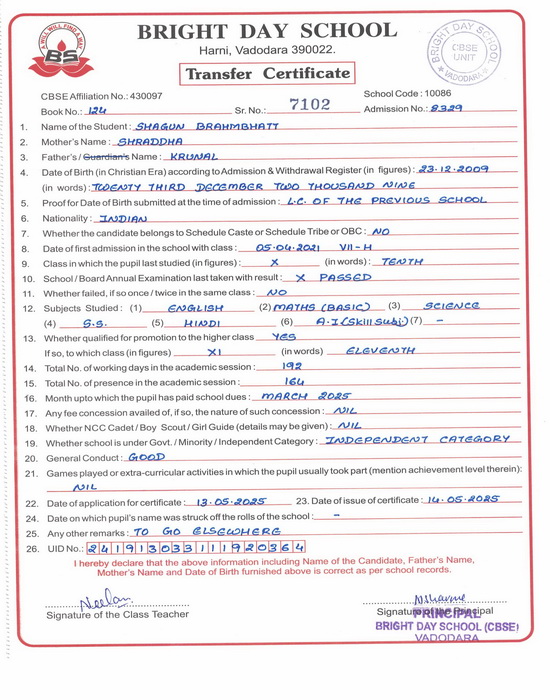 A WILL WILL FIND A WAY
BS
BRIGHT DAY SCHOOL
Harni, Vadodara 390022.
Transfer Certificate
BRIGHT DAY SCHOOL
CBSE
UNIT
VADODARA
CBSE Affiliation No.: 430097 School Code : 10086
Book No.: 124 Sr. No.: 7102 Admission No.: 8329
1. Name of the Student : SHAGUN BRAHMBHATT
2. Mother's Name : SHRADDHA
3. Father's / Guardian's Name : KRUNAL
4. Date of Birth (in Christian Era) according to Admission & Withdrawal Register (in figures) : 23.12.2009
(in words) : TWENTY THIRD DECEMBER TWO THOUSAND NINE
5. Proof for Date of Birth submitted at the time of admission : L.C. OF THE PREVIOUS SCHOOL
6. Nationality : INDIAN
7. Whether the candidate belongs to Schedule Caste or Schedule Tribe or OBC : NO
8. Date of first admission in the school with class : 05.04.2021 VII-H
9. Class in which the pupil last studied (in figures) : X (in words) : TENTH
10. School / Board Annual Examination last taken with result : X PASSED
11. Whether failed, if so once / twice in the same class : NO
12. Subjects Studied : (1) ENGLISH (2) MATHS (BASIC) (3) SCIENCE
(4) S.S. (5) HINDI (6) A.I (Skill Subj) (7) -
13. Whether qualified for promotion to the higher class YES
If so, to which class (in figures) XI (in words) ELEVENTH
14. Total No. of working days in the academic session : 192
15. Total No. of presence in the academic session : 164
16. Month upto which the pupil has paid school dues : MARCH 2025
17. Any fee concession availed of, if so, the nature of such concession : NIL
18. Whether NCC Cadet / Boy Scout / Girl Guide (details may be given) : NIL
19. Whether school is under Govt. / Minority / Independent Category : INDEPENDENT CATEGORY
20. General Conduct : GOOD
21. Games played or extra-curricular activities in which the pupil usually took part (mention achievement level therein):
NIL
22. Date of application for certificate : 13.05.2025 23. Date of issue of certificate : 14.05.2025
24. Date on which pupil's name was struck off the rolls of the school : -
25. Any other remarks : TO GO ELSEWHERE
26. UID No.: 241913033111920364
I hereby declare that the above information including Name of the Candidate, Father's Name,
Mother's Name and Date of Birth furnished above is correct as per school records.
Neelam
Signature of the Class Teacher Signature of the Principal
PRINCIPAL
BRIGHT DAY SCHOOL (CBSE)
VADODARA